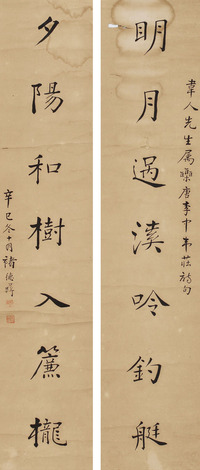 葦人先生属檃唐李中韋莊詩句
眀月過溪吟釣艇
夕陽和樹入簾櫳
辛巳冬十月褚德彝